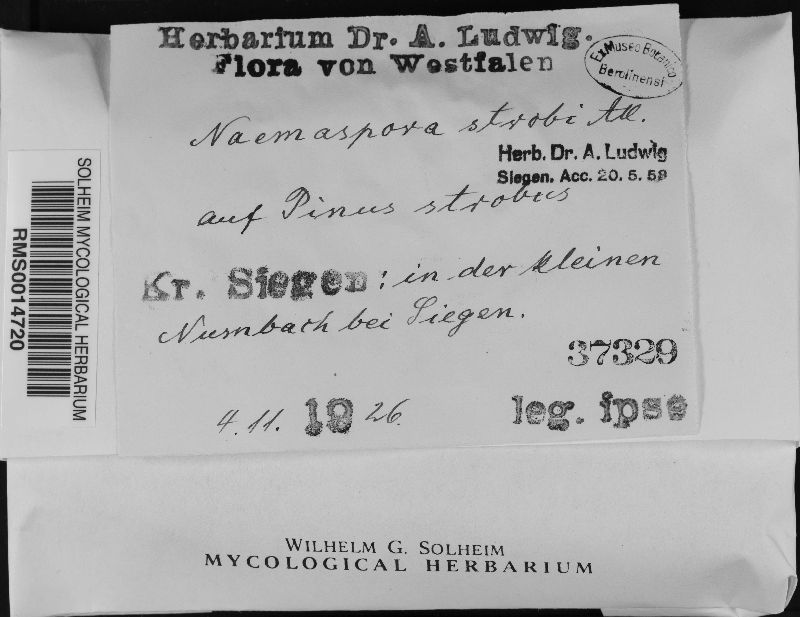 Herbarium Dr. A. Ludwig.
Flora von Westfalen
Ex Museo Botanico
Berolinensi
Naemaspora strobi All.
Herb. Dr. A. Ludwig
Siegen. Acc. 20. 5. 59
auf Pinus strobus
Kr. Siegen: in der kleinen
Numbach bei Siegen.
37329
4. 11. 1926.
leg. ipse
SOLHEIM MYCOLOGICAL HERBARIUM
RMS0014720
WILHELM G. SOLHEIM
MYCOLOGICAL HERBARIUM